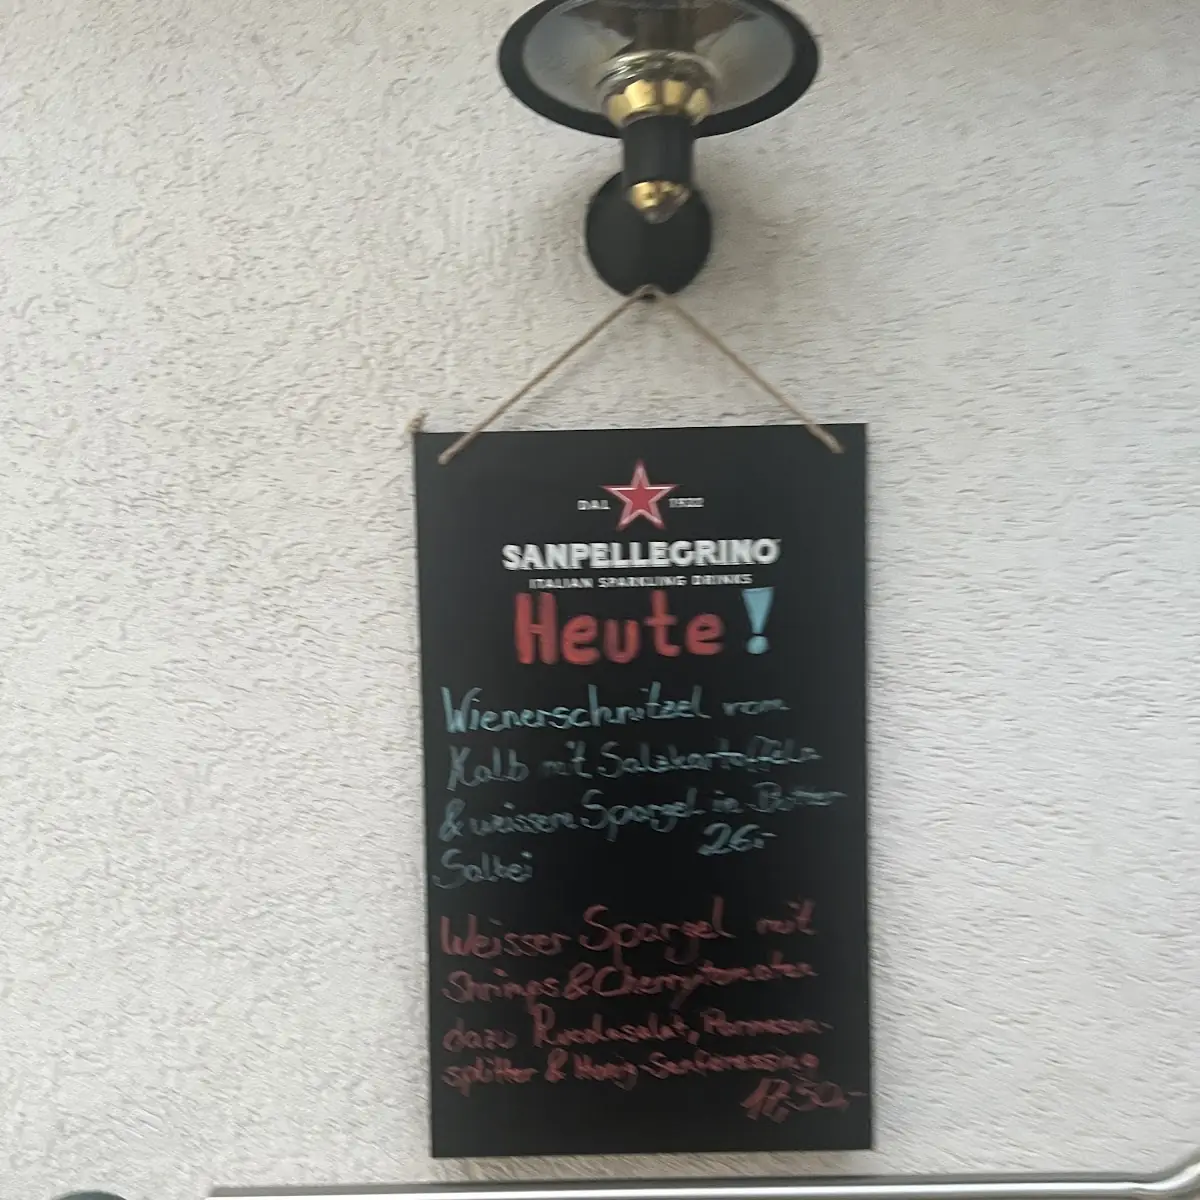 DAL 1932
SANPELLEGRINO
ITALIAN SPARKLING DRINKS
Heute!
Wienerschnitzel vom
Kalb mit Salzkartoffeln
& weissem Spargel in Butter
26.-
Salbei
Weisser Spargel mit
Shrimps & Cherrytomaten
dazu Rucolasalat, Parmesan-
splitter & Honig-Senfdressing
17,50,-